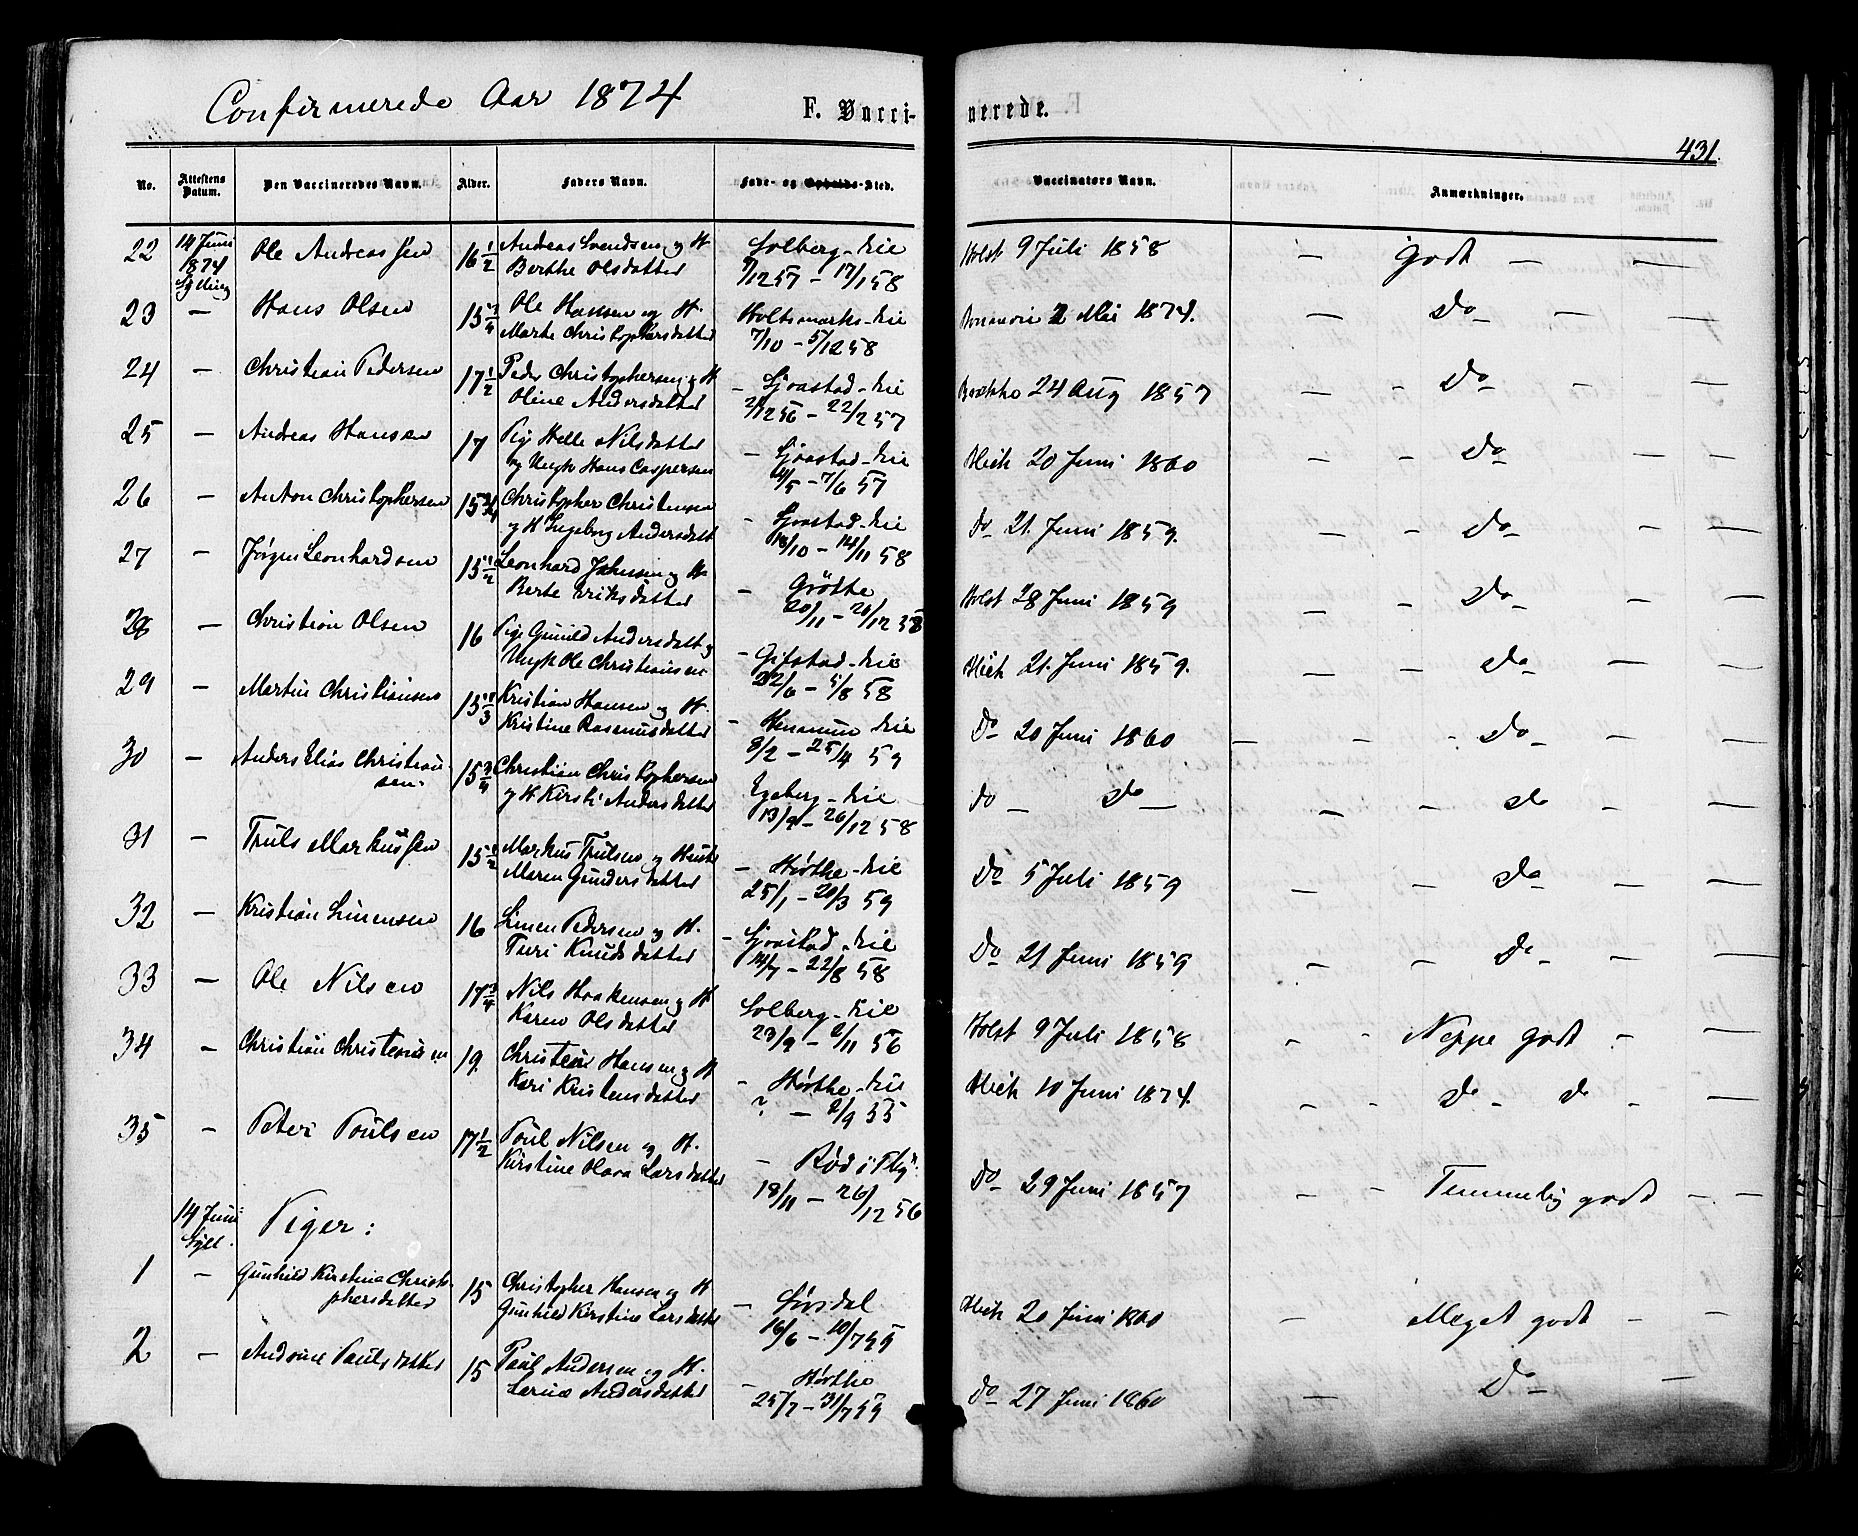 Confirmerede Aar 1874
F. Vacci-
nerede.
431.
No. Attestens Datum. Den Vaccineredes Navn. Alder. Faders Navn. Føde- og Opholds-Sted. Vaccinators Navn. Anmærkninger.
22 14 Juni 1874 Ole Andreassen 16 1/2 Andreas Svendsen og H. Berthe Olsdatter Solberg - Eie 9/12 57 - 17/1 58 Holst 9 Juli 1858 — Godt — —
23 — Hans Olsen 15 Ole Hansen og H. Marthe Christophersdatter Holtsmarks - Eie 7/10 - 5/12 58 2 Mai 1874. — Do — —
24 — Christian Pedersen 17 1/2 Peder Christophersen og H. Oline Andersdatter — Sjaastad - Eie 2/12 56 - 22/2 57 Brække 24 Aug 1857 — - Do - —
25 — Andreas Hansen 17 Pige Helle Nilsdatter og Ungk Hans Caspersen — Sjaastad - Eie - 7/6 57 20 Juni 1860 — - Do — —
26 — Anton Christophersen 15 3/4 Christopher Christensen og H. Ingeborg Andersdatt — Sjaastad - Eie 18/10 - 14/11 58 Do 21 Juni 1859. — - Do - —
27 — Jørgen Leonhardsen 15 1/2 Leonhard Johnsen og H. Berte Eriksdatter — Grøtte 20/11 - 26/12 58 Holst 28 Juni 1859 — - Do - —
28 — Christian Olsen 16 Pige Gunild Andersdatt og Ungk Ole Christiansen — Gifstad - Eie 22/6 - 5/8 58 21 Juni 1859. — - Do — —
29 — Martin Christiansen 15 1/3 Kristian Hansen og H. Kristine Rasmusdatter — Hennum Eie 8/2 - 25/4 59 Do 20 Juni 1860 — - Do - —
30 — Anders Elias Christiansen. 15 3/4 Christian Christophersen og H. Kirsti Andersdatter Egeberg - Eie 13/9 - 26/12 58 Do — Do — — - Do - —
31 — Truls Markussen 15 1/2 Markus Trulsen og Hust Maren Gundersdatter — Hørthe - Eie 25/1 - 20/3 59 Do 5 Juli 1859 — - Do — —
32 — Kristian Simensen 16 Simen Pedersen og H. Turi Knudsdatter — Sjaastad - Eie - 22/8 58 Do 21 Juni 1859 — - Do - —
33 — Ole Nilsen 17 3/4 Nils Haakensen og H. Karen Olsdatter Solberg - Eie 23/9 - 2/11 56 Holst 9 Juli 1858 - - Neppe godt - —
34 — Christian Christensen 19. Christen Hansen og H. Kari Kristensdatter — Hørthe - Eie ? — 2/9 55 10 Juni 1874. - - Do - Do - —
35 — Peter Poulsen 17 1/2 Poul Nilsen og H. Kirstine Larsdatter — Rød i 18/11 - 26/12 56 Do 29 Juni 1857 — - Temmelig godt - —
14 Juni Piger:
1 — Gunhild Kirstine Christophersdatter 15 Christopher Hansen og H. Gunhild Kirstine Larsdatter — Sørsdal 16/6 - 10/7 59 20 Juni 1860 — Meget godt - —
2 — Andrine Paulsdatter 15 Paul Andersen og H. Andersdatter — Hørthe 25/7 - 31/7 59 Do 27 Juni 1860 — Do —